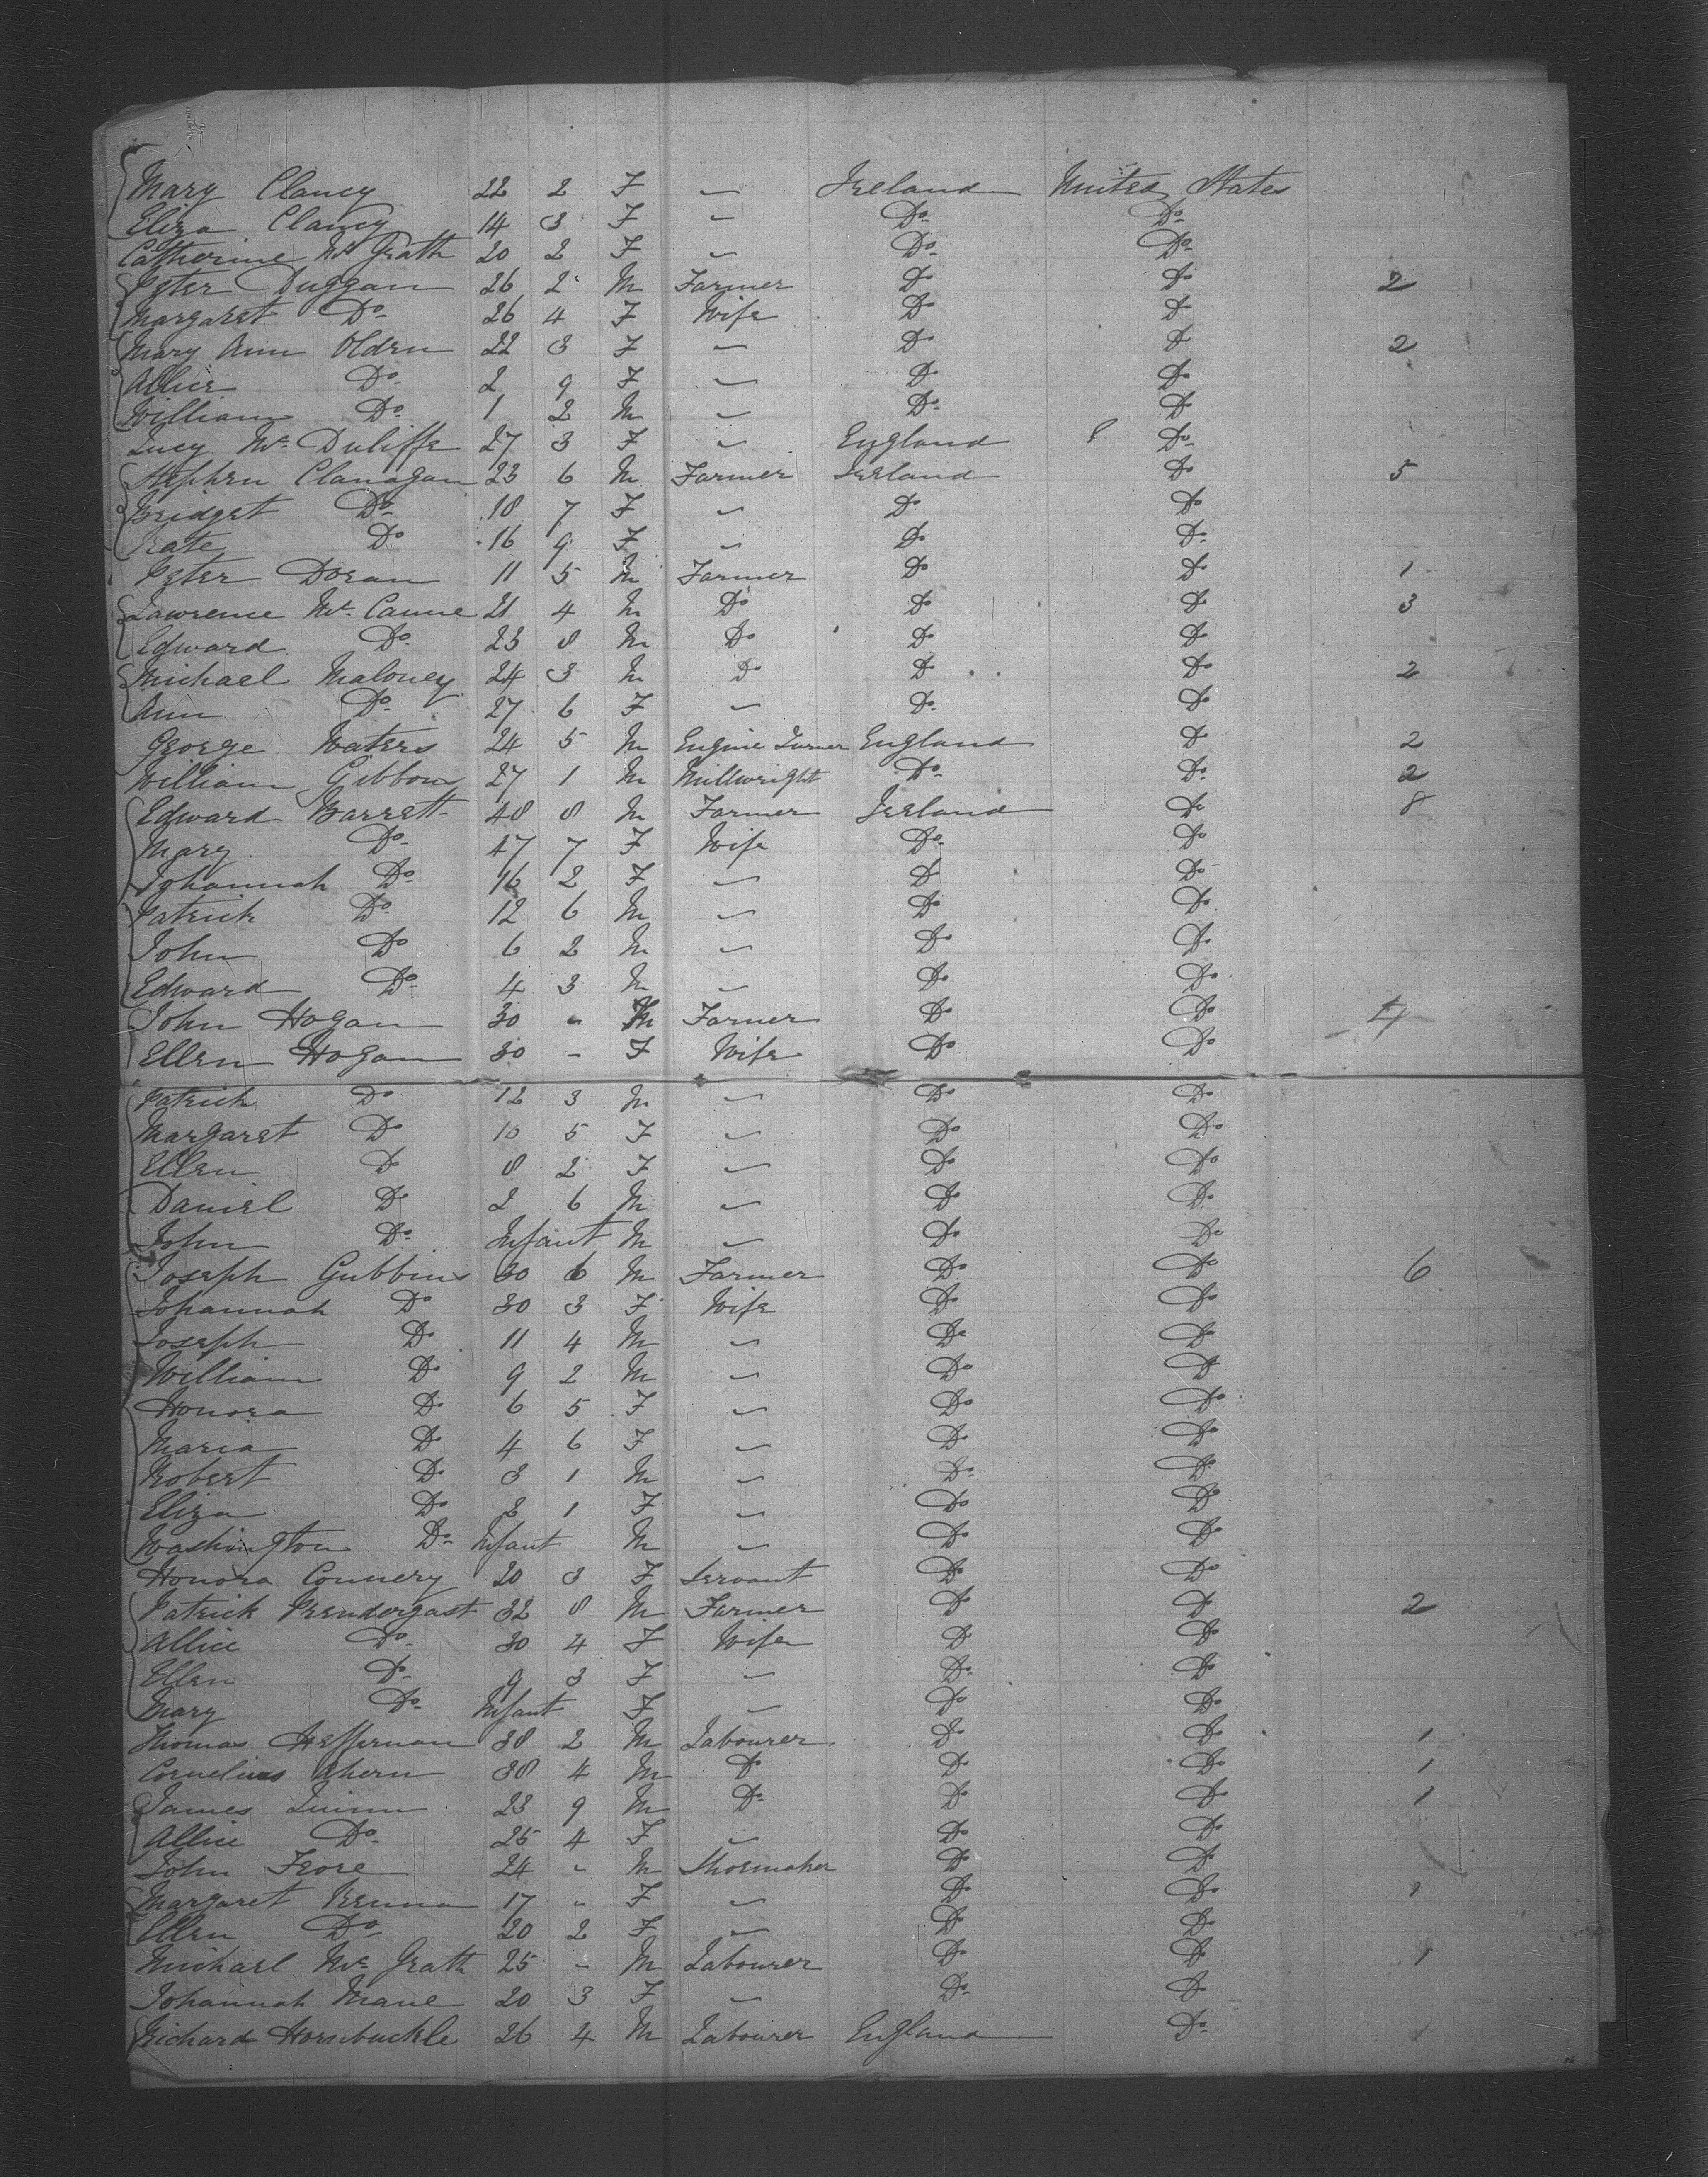 Mary Clancy 22 2 F " Ireland United States
Eliza Clancy 14 3 F " Do Do
Catherine Mc Grath 20 2 F " Do Do
Peter Duggan 26 2 M Farmer Do Do 2
Margaret Do 26 4 F Wife Do Do
Mary Ann Olden 22 3 F " Do Do 2
Allice Do 2 9 F " Do Do
William Do 1 2 M " Do Do
Lucy Mc Duliffe 27 3 F " England Do
Stephen Clanagan 23 6 M Farmer Ireland Do 5
Bridget Do 18 7 F " Do Do
Kate Do 16 9 F " Do Do
Peter Doran 11 5 M Farmer Do Do 1
Lawrence Mc Canne 21 4 M Do Do Do 3
Edward Do 23 8 M Do Do Do
Michael Maloney 24 3 M Do Do Do 2
Ann Do 27 6 F " Do Do
George Waters 24 5 M Engine Turner England Do 2
William Gibbons 27 1 M Millwright Do Do 2
Edward Barrett 48 8 M Farmer Ireland Do 8
Mary Do 47 7 F Wife Do Do
Johannah Do 16 2 F " Do Do
Patrick Do 12 6 M " Do Do
John Do 6 2 M " Do Do
Edward Do 4 3 M " Do Do
John Hogan 30 " M Farmer Do Do 4
Ellen Hogan 30 - F Wife Do Do
Patrick Do 12 3 M " Do Do
Margaret Do 10 5 F " Do Do
Ellen Do 8 2 F " Do Do
Daniel Do 2 6 M " Do Do
John Do Infant M " Do Do
Joseph Gubbins 30 6 M Farmer Do Do 6
Johannah Do 30 3 F Wife Do Do
Joseph Do 11 4 M " Do Do
William Do 9 2 M " Do Do
Honora Do 6 5 F " Do Do
Maria Do 4 6 F " Do Do
Robert Do 3 1 M " Do Do
Eliza Do 1 F " Do Do
Washington Do Infant M " Do Do
Honora Connery 20 3 F Servant Do Do
Patrick Prendergast 32 8 M Farmer Do Do 2
Allice Do 30 4 F Wife Do Do
Ellen Do 9 3 F " Do Do
Mary Do Infant F " Do Do
Thomas Heffernan 38 2 M Labourer Do Do 1
Cornelius Ahern 38 4 M Do Do Do 1
James Quinn 23 9 M Do Do Do 1
Allice Do 25 4 F " Do Do
John Frore 24 " M Shoemaker Do Do
Margaret Kenna 17 " F " Do Do 1
Ellen Do 20 2 F " Do Do
Michael Mc Grath 25 - M Labourer Do Do 1
Johannah 20 3 F " Do Do
Richard Hornbuckle 26 4 M Labourer England Do 1